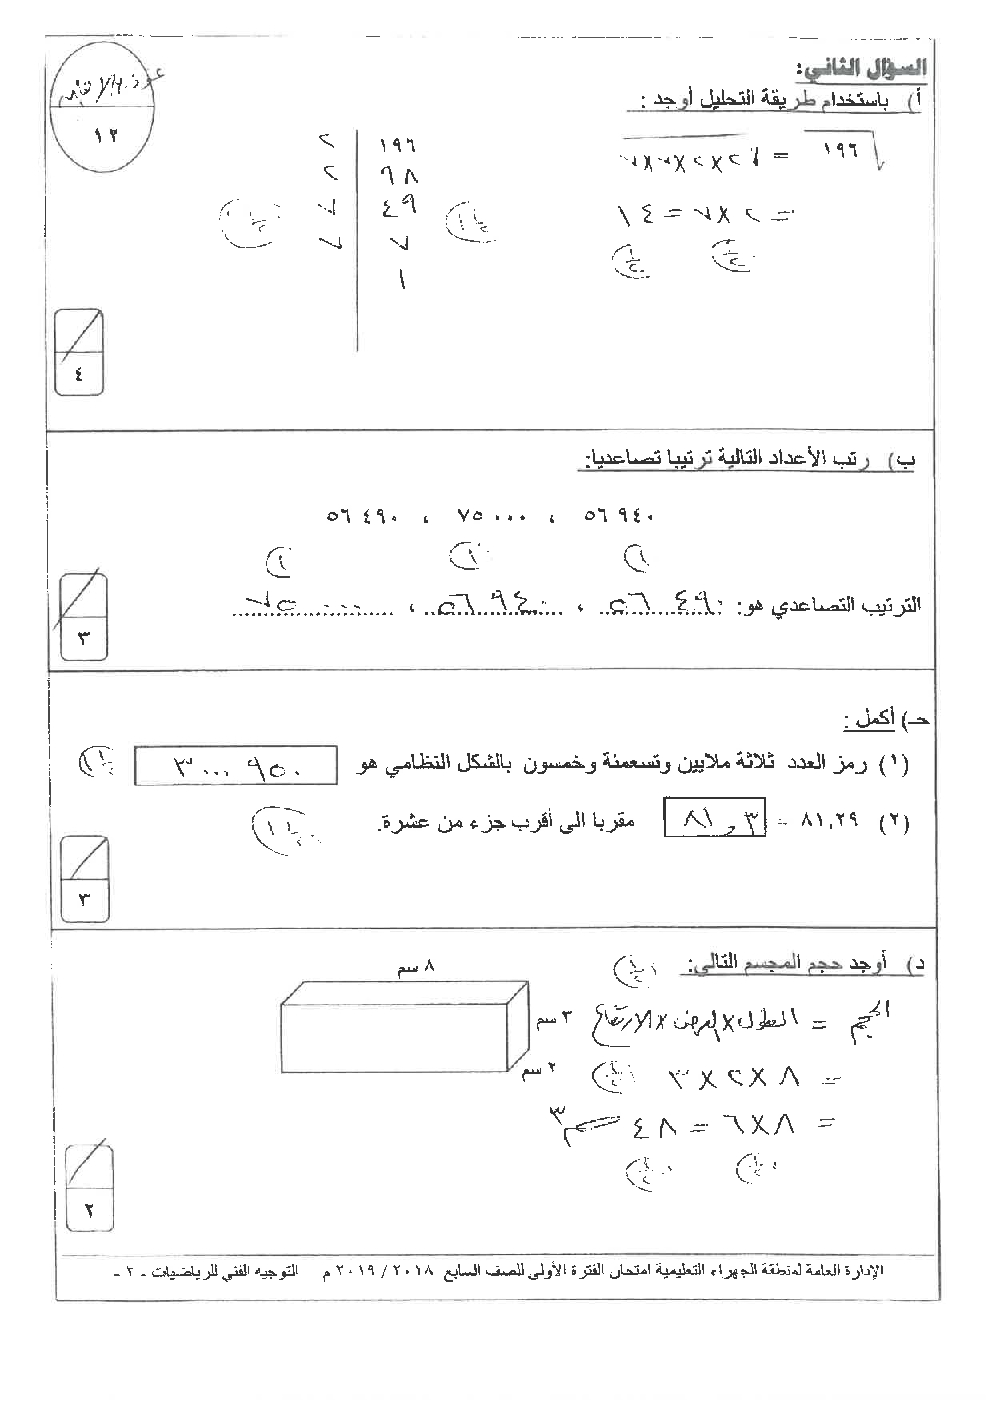 السؤال الثاني:
١٢
أ) باستخدام طريقة التحليل أوجد :
√١٩٦ = √٢×٢×٧×٧
= ٢×٧ = ١٤
١٩٦ ٢
٩٨ ٢
٤٩ ٧
٧ ٧
١
١ ١/٢
١/٢
١/٢
٤
ب) رتب الأعداد التالية ترتيبا تصاعديا:
٥٦ ٩٤٠ ، ٧٥ ٠٠٠ ، ٥٦ ٤٩٠
١ ١ ١
الترتيب التصاعدي هو: ٥٦ ٤٩٠ ، ٥٦ ٩٤٠ ، ٧٥ ٠٠٠
٣
حـ) أكمل :
(١) رمز العدد ثلاثة ملايين وتسعمئة وخمسون بالشكل النظامي هو ٣ ٠٠٠ ٩٥٠
١ ١/٢
(٢) ٨١,٢٩ = ٨١,٣ مقربا الى أقرب جزء من عشرة.
١ ١/٢
٣
د) أوجد حجم المجسم التالي:
١/٢
٨ سم
٣ سم
٢ سم
الحجم = الطول × العرض × الارتفاع
= ٨ × ٢ × ٣
١/٢
= ٨ × ٦ = ٤٨ سم٣
١/٢ ١/٢
٢
الإدارة العامة لمنطقة الجهراء التعليمية امتحان الفترة الأولى للصف السابع ٢٠١٨ / ٢٠١٩ م التوجيه الفني للرياضيات - ٢ -